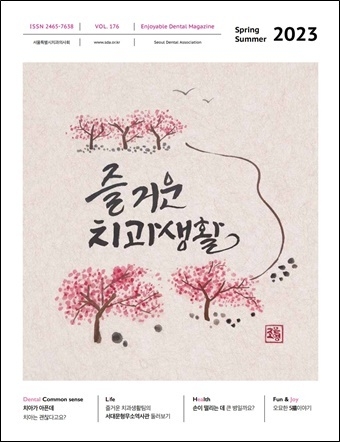 ISSN 2465-7638
VOL. 176
Enjoyable Dental Magazine
서울특별시치과의사회
www.sda.or.kr
Seoul Dental Association
Spring
Summer 2023
즐거운
치과생활
Dental Common sense
치아가 아픈데
치아는 괜찮다고요?
Life
즐거운 치과생활팀의
서대문형무소역사관 둘러보기
Health
손이 떨리는 데 큰 병일까요?
Fun & Joy
오묘한 5월이야기